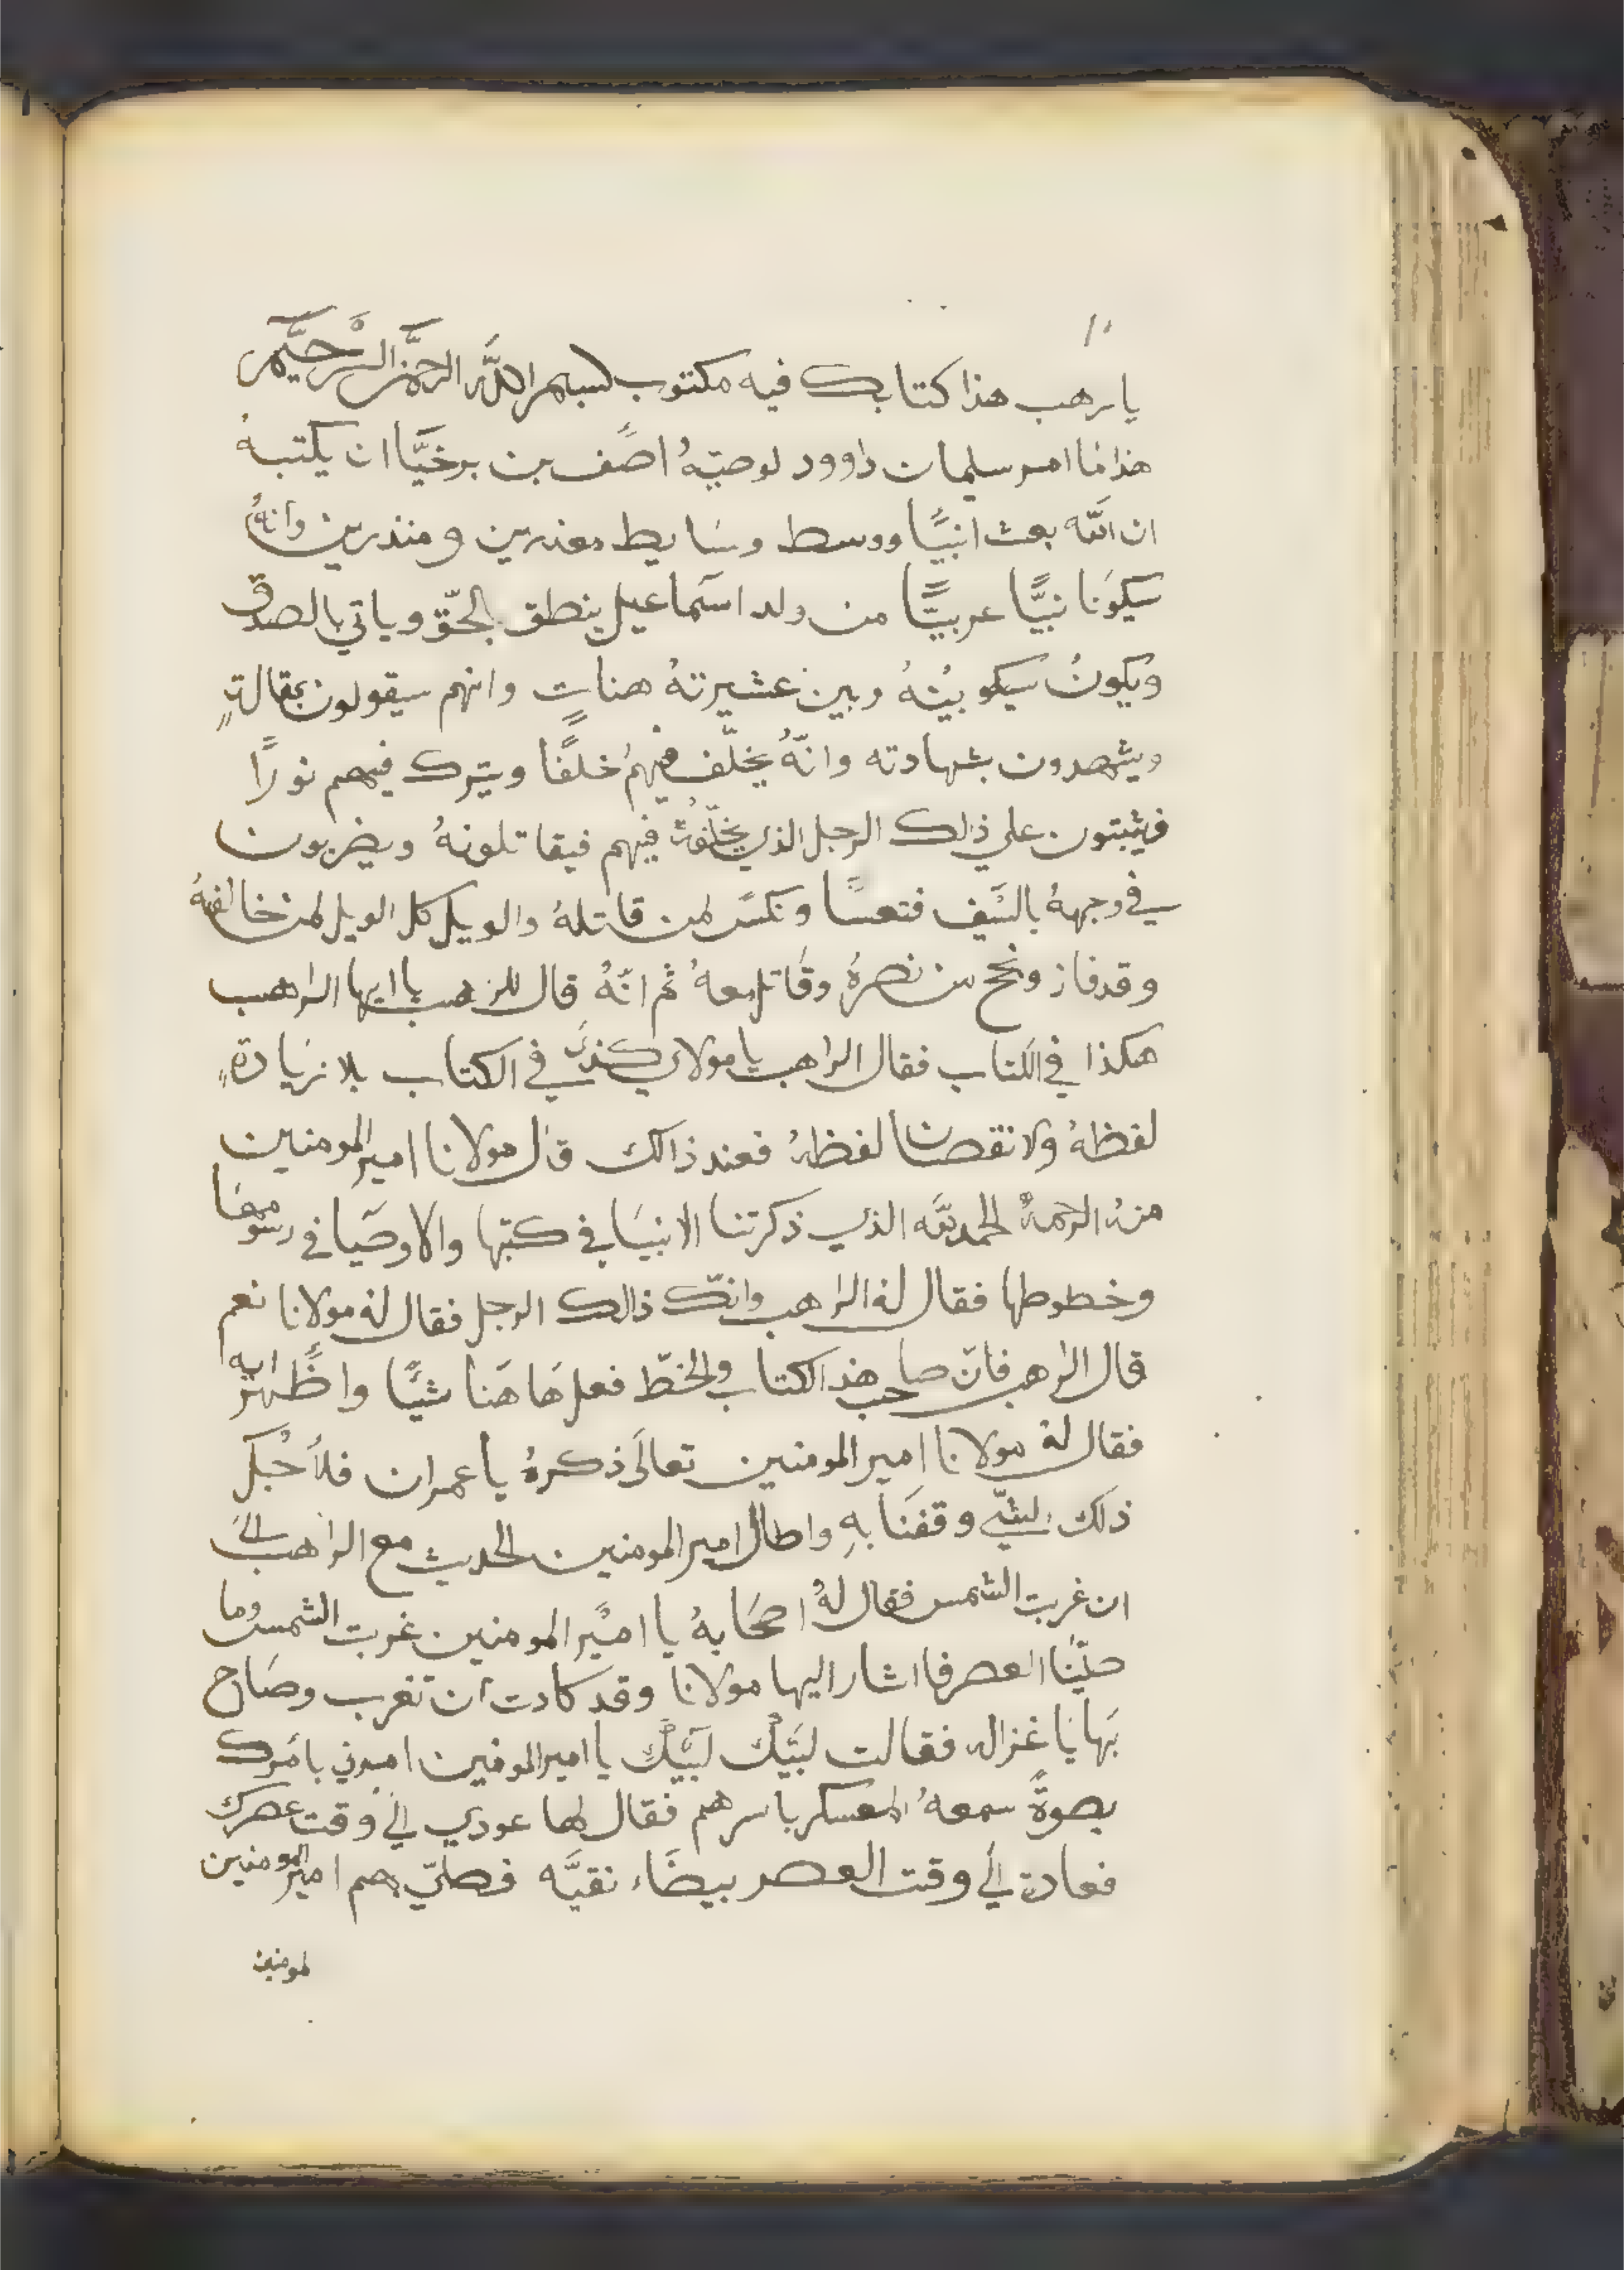 ١٠
يا رهب هذا كتابك فيه مكتوب بسم الله الرحمن الرحيم
هذا ما امر سليمان داوود لوصيّهُ اصف بن برخيَّا ان يكتبهُ
ان الله بعث انبيًا ووسط وسَايط معذرين و منذرين وانهُ
سيكونَا نبيًّا عربيًّا من ولد اسمَاعيل ينطق بالحقّ وياتي بالصدق
ويكونُ سيكو بينهُ وبين عشيرتهُ هنات وانهم سيقولون بمقالةٍ
ويشهدون بشهادته وانّهُ يخلّف فيهمُ خلفًا ويترك فيهم نورًا
فيثبتون على ذلك الرجل الذي يخلّفهُ فيهم فيقاتلونهُ ويضربون
في وجههُ بالسَيف فتعسًا ونكسَ لمن قاتلهُ والويل كل الويل لمن خالفهُ
وقد فاز ونجح من نصرهُ وقاتل معهُ ثم انّهُ قال للرهب يا ايها الراهب
هكذا في الكتاب فقال الراهب يا مولاي كذي في الكتاب بلا زيَادةٍ
لفظهُ ولا نقصانا لفظهُ فعند ذالك قال مولانا امير المومنين
منهُ الرحمهُ الحمد لله الذي ذكرتنا الانبيَا في كتبها والاوصَيا في رسومهَا
وخطوطها فقال لهُ الراهب وانّك ذالك الرجل فقال لهُ مولانا نعم
قال الراهب فانّ صاحب هذا الكتاب والخطّ فعل هَاهَنا شيًّا واظهر ايه
فقال لهُ مولانا امير المومنين تعالَى ذكرهُ يا عمران فلأجْل
ذلك الشّي وقفنَا بهِ واطال امير المومنين الحديث مع الراهب الىَ
ان غربت الشمس فقال لهُ اصحَابهُ يا اميْر المومنين غربت الشمس وما
صلّيَنا العصر فا اشار اليها مولانا وقد كادت ان تغرب وصَاح
بَها يَا غزاله فقالت لبيَّكْ لَبيَّكْ يا امير المومنين امرني بامرك
بصوةً سمعهُ المعسكر باسرهم فقال لها عودي الى وقت عصرك
فعادة الى وقت العصر بيضَاء نقيَّه فصلّي بهم امير المومنين
لمومنين